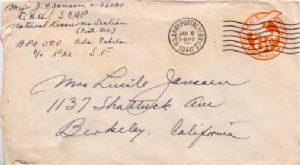 G.H.Q. SCAP
Natural Resources Section
APO 500 Adv. Echelon
c/o P.M. S.F.
U.S. ARMY POSTAL SERVICE
JAN 8
1946
Mrs Lucile Janssen
1137 Shattuck Ave
Berkeley, California